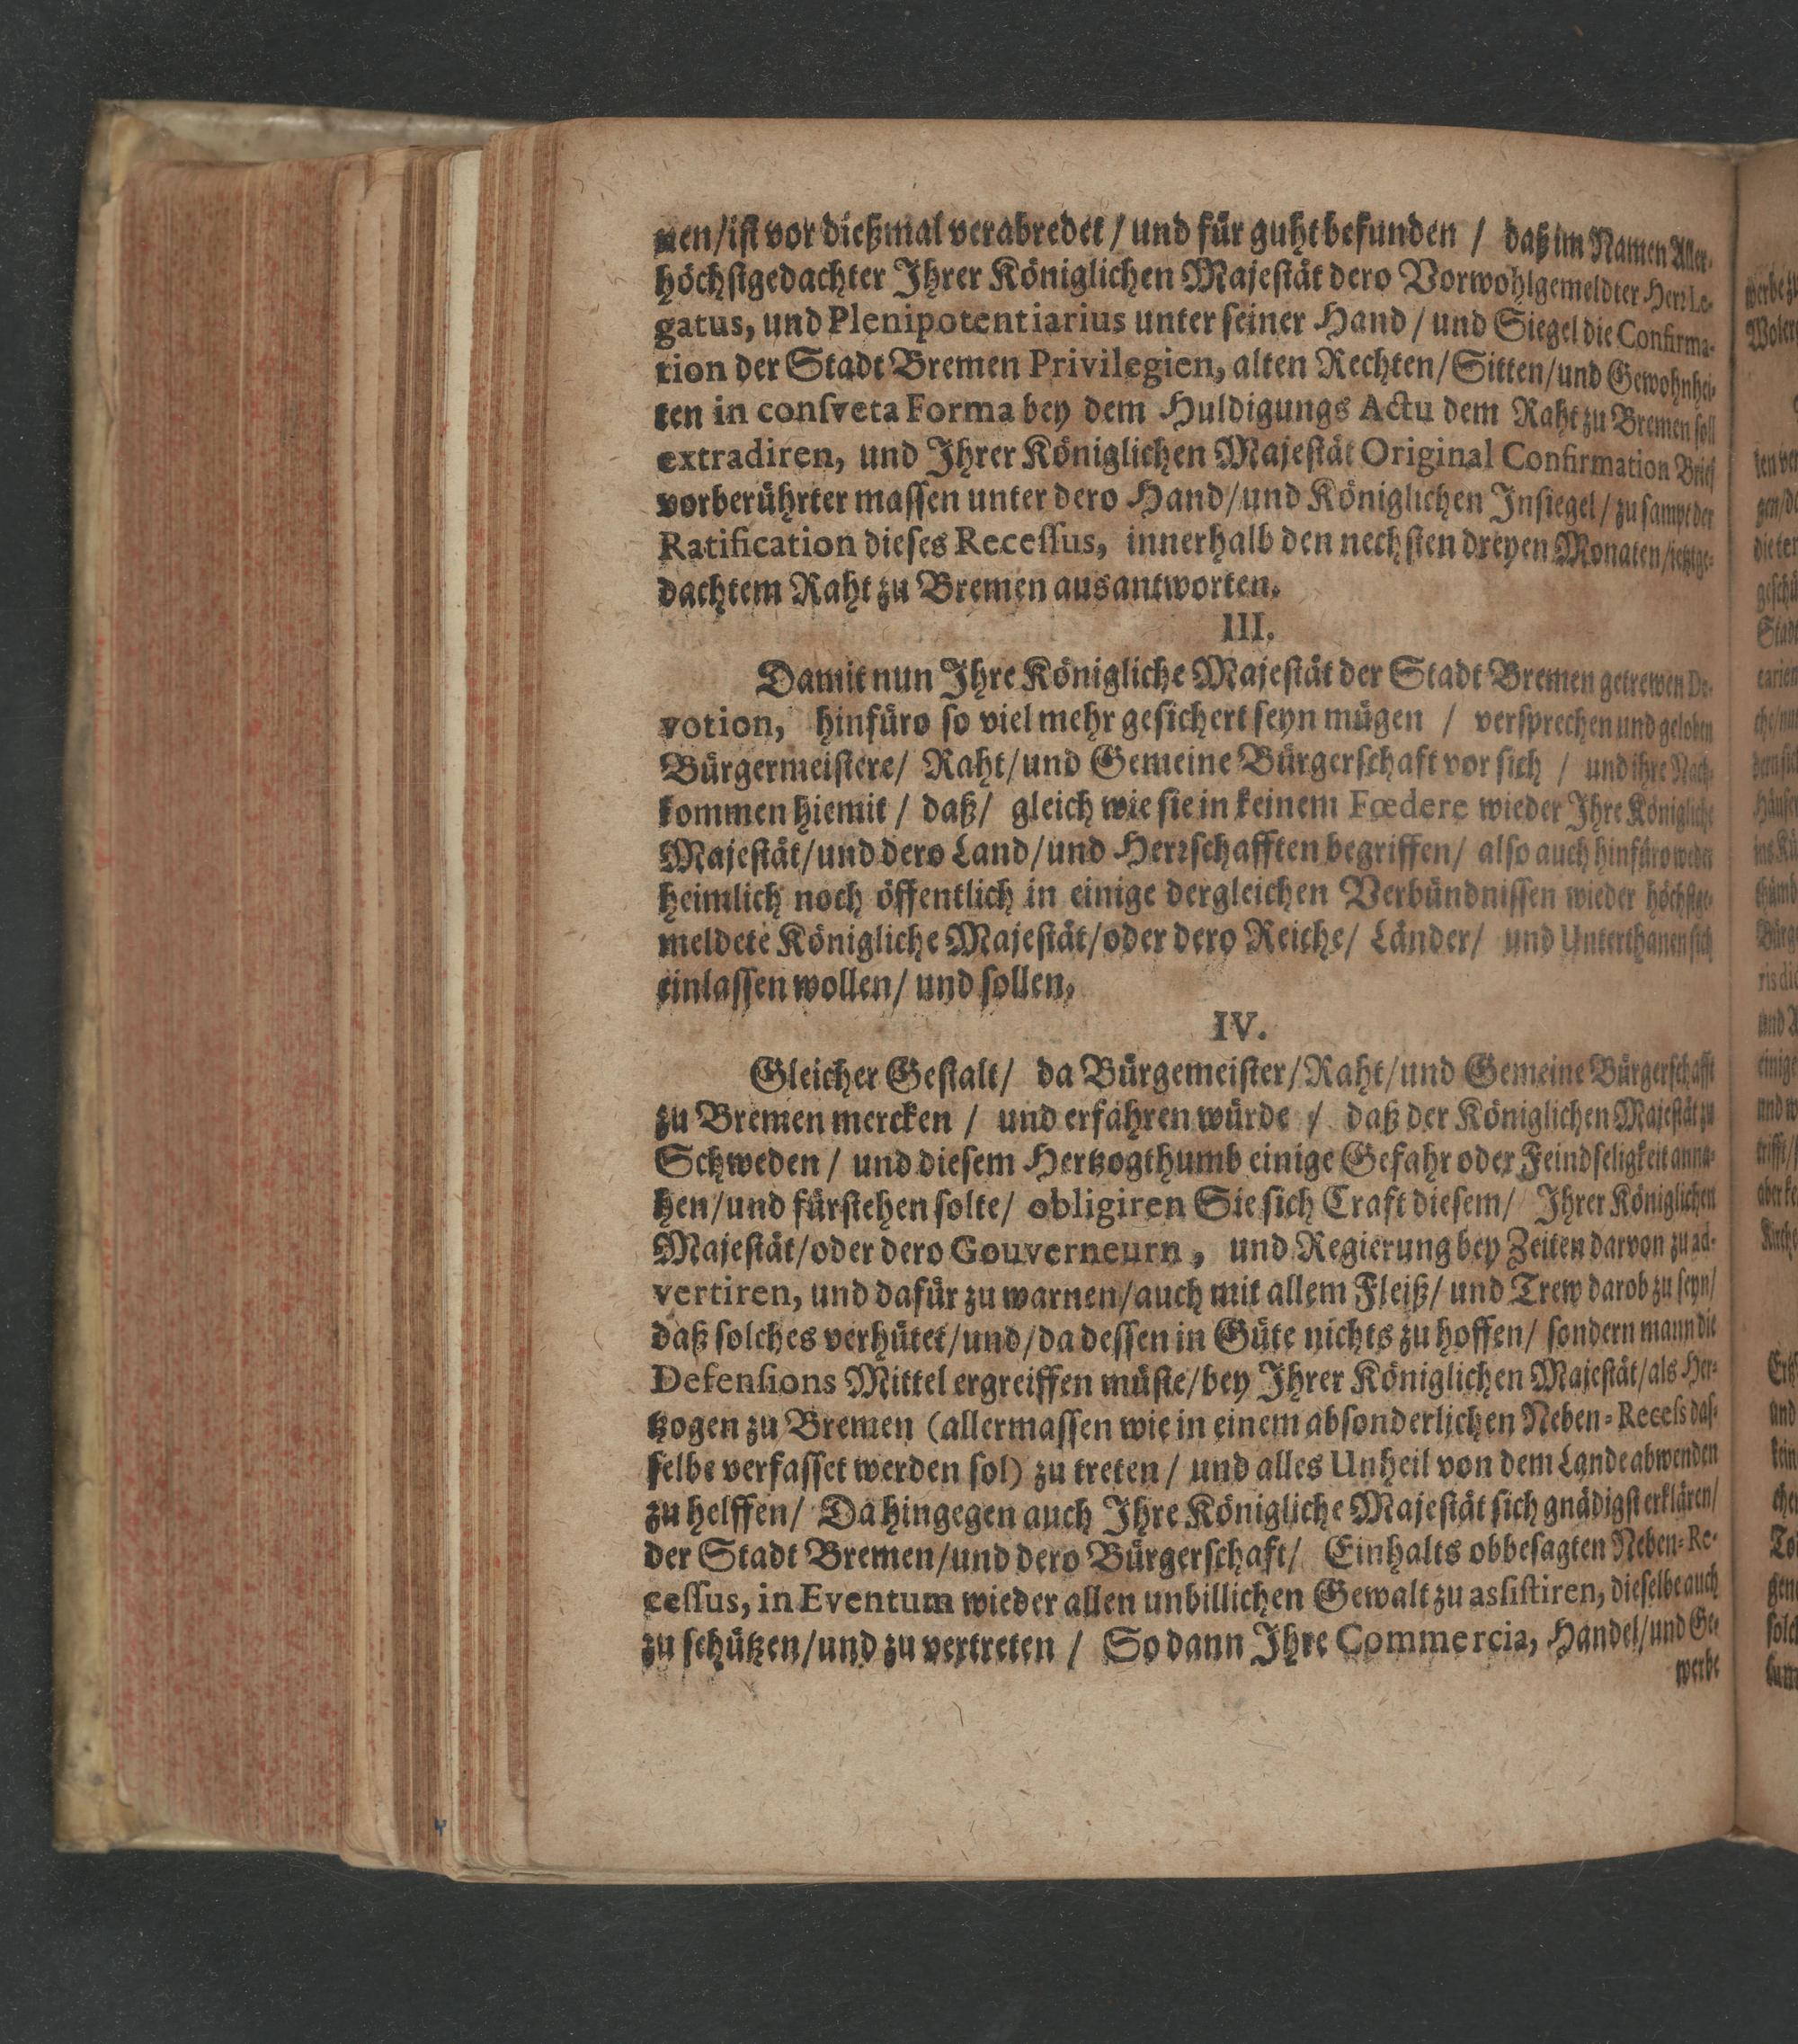 nen/ist vor dießmal verabredet / und für guht befunden / daß im Namen Aller-
höchstgedachter Ihrer Königlichen Majestät dero Vorwohlgemeldter Herr Le-
gatus, und Plenipotentiarius unter seiner Hand / und Siegel die Confirma-
tion der Stadt Bremen Privilegien, alten Rechten/Sitten/und Gewohnhei-
ten in consveta Forma bey dem Huldigungs Actu dem Raht zu Bremen soll
extradiren, und Ihrer Königlichen Majestät Original Confirmation Brief
vorberührter massen unter dero Hand/und Königlichen Insiegel/ zu sampt der
Ratification dieses Recessus, innerhalb den nechsten dreyen Monaten/jetztge-
dachtem Raht zu Bremen ausantworten.
III.
Damit nun Ihre Königliche Majestät der Stadt Bremen getrewen De-
votion, hinfüro so viel mehr gesichert seyn mügen / versprechen und geloben
Bürgermeistere/ Raht/und Gemeine Bürgerschaft vor sich / und ihre Nach-
kommen hiemit / daß/ gleich wie sie in keinem Fœdere wieder Ihre Königliche
Majestät/und dero Land/und Herrschafften begriffen/ also auch hinfüro weder
heimlich noch öffentlich in einige dergleichen Verbündnissen wieder höchstge-
meldete Königliche Majestät/oder dero Reiche/ Länder/ und Unterthanen sich
einlassen wollen/ und sollen.
IV.
Gleicher Gestalt/ da Bürgemeister/Raht/und Gemeine Bürgerschafft
zu Bremen mercken / und erfahren würde / daß der Königlichen Majestät zu
Schweden / und diesem Hertzogthumb einige Gefahr oder Feindseligkeit anna-
hen/und fürstehen solte/ obligiren Sie sich Craft diesem/ Ihrer Königlichen
Majestät/oder dero Gouverneurn, und Regierung bey Zeiten darvon zu ad-
vertiren, und dafür zu warnen/auch mit allem Fleiß/ und Trew darob zu seyn/
daß solches verhütet/und/da dessen in Güte nichts zu hoffen/ sondern mann die
Defensions Mittel ergreiffen müste/bey Ihrer Königlichen Majestät/als Her-
tzogen zu Bremen (allermassen wie in einem absonderlichen Neben-Recess das-
selbe verfasset werden sol) zu treten / und alles Unheil von dem Lande abwenden
zu helffen/ Da hingegen auch Ihre Königliche Majestät sich gnädigst erklären/
der Stadt Bremen/und dero Bürgerschaft/ Einhalts obbesagten Neben-Re-
cessus, in Eventum wieder allen unbillichen Gewalt zu assistiren, dieselbe auch
zu schützen/und zu vertreten / So dann Ihre Commercia, Handel/und Ge-
werbe